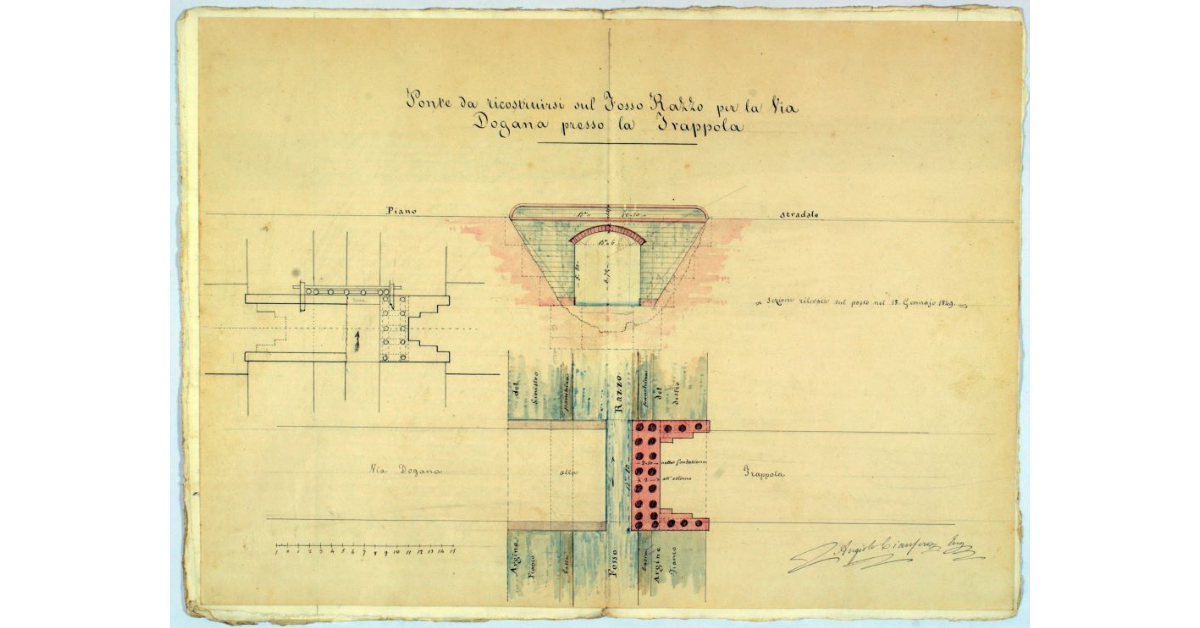 Ponte da ricostruirsi sul Fosso Razzo per la Via
Dogana presso la Trappola
Piano
stradale
Sezione rilevata sul posto nel 12 Gennajo 1849.
del
sinistro
Razzo
del
destro
Via Dogana
alla
nella fondazione
all'esterno
Trappola
1 0 1 2 3 4 5 6 7 8 9 10 11 12 13 14 15
Argine
Fosso
Argine
Angiolo Cianferoni Ing